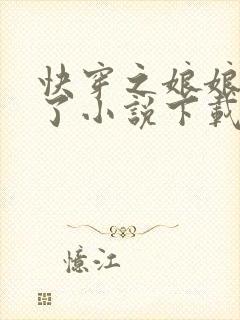 快穿之娘娘
了小説下載
憶江